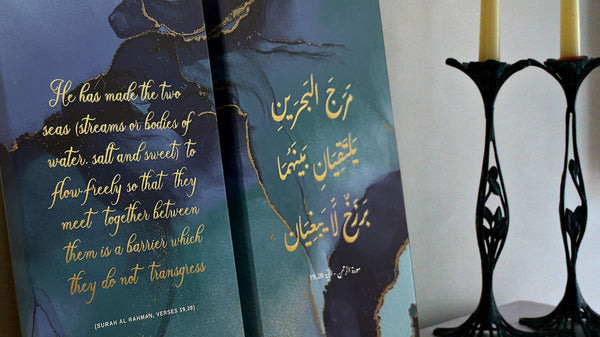 He has made the two
seas (streams or bodies of
water, salt and sweet) to
flow-freely so that they
meet together between
them is a barrier which
they do not transgress
(SURAH AL RAHMAN, VERSES 19,20)
مَرَجَ البَحرَينِ
يَلتَقِيَانِ بَينَهُمَا
بَرزَخٌ لَا يَبغِيَان
سورة الرحمن - الآية 19,20